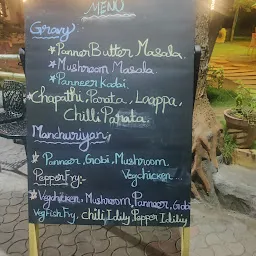 MENU
Gravy:
* Panner Butter Masala.
* Mushroom Masala.
* Panneer Kadai.
* Chapathi, Parata, Laappa,
Chilli Parata.
Manchuriyan;
* Panneer, Gobi, Mushroom
Vegchicken...
Pepper Fry:-
* Vegchicken, Mushroom, Panneer, Gobi
Veg Fish Fry, Chilli Idily, Pepper Idiliy